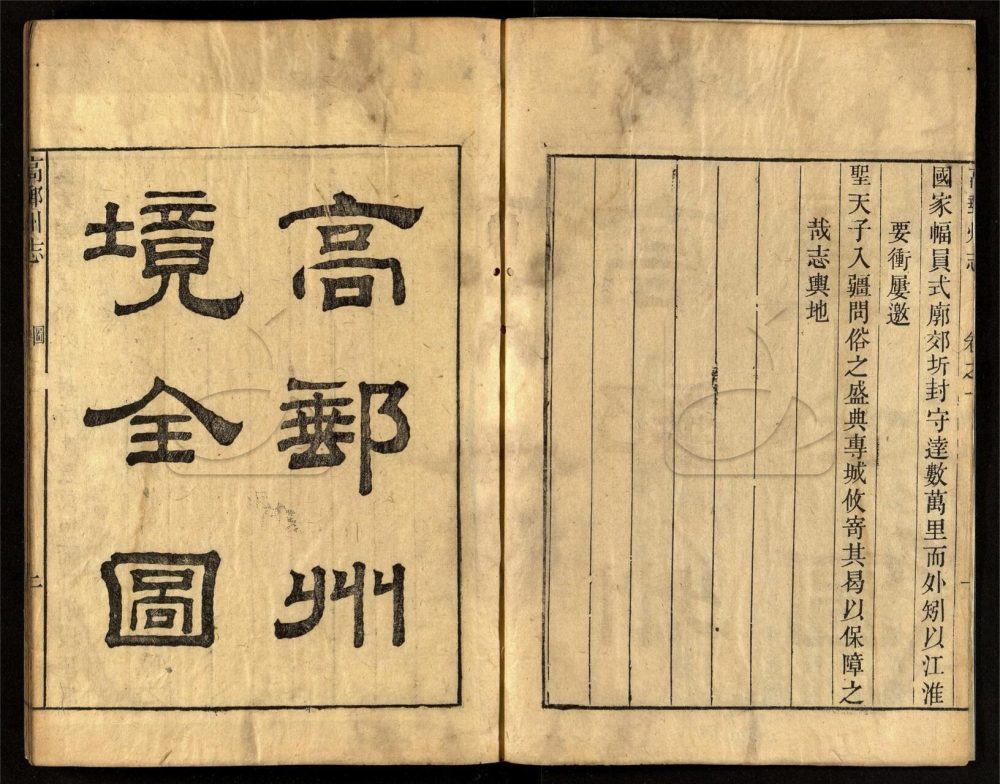 高郵州志 卷之一
國家幅員式廓郊圻封守達數萬里而外矧以江淮
要衝屢邀
聖天子入疆問俗之盛典專城攸寄其曷以保障之
哉志輿地
高郵州
境全圖
高郵州志 圖 二